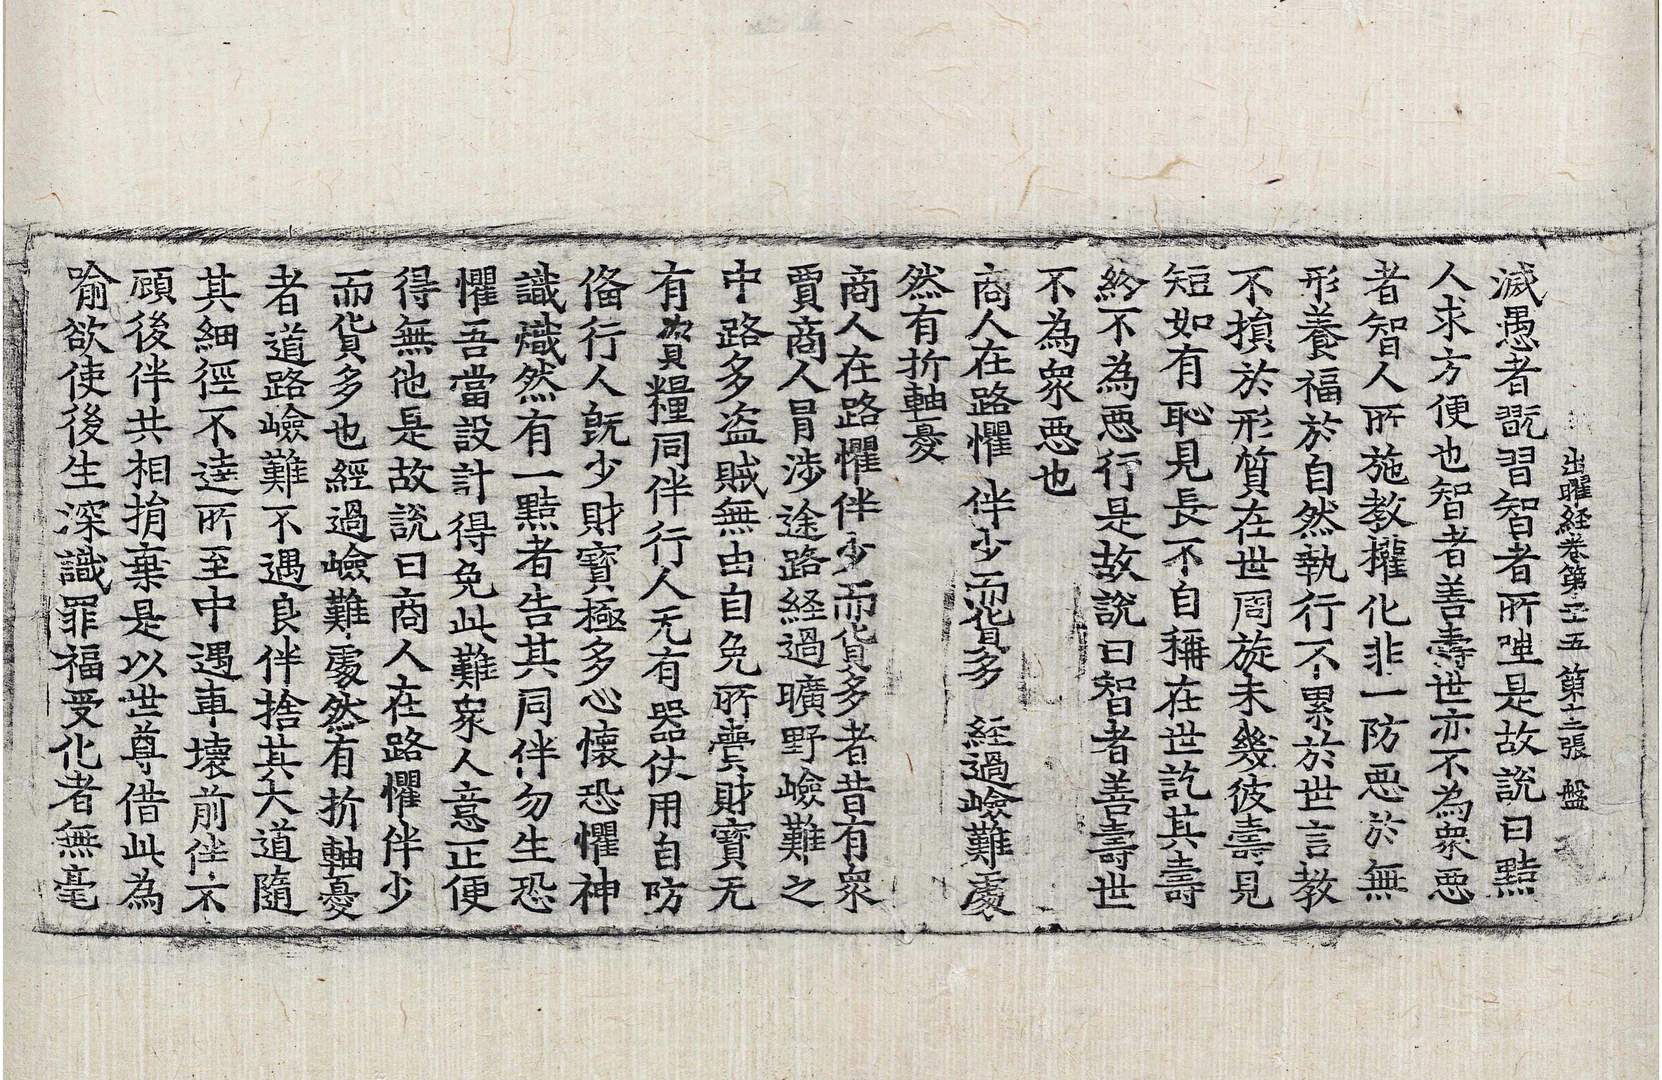 出曜経卷第二十五 第十二張 盤
滅愚者翫習智者所唑是故說曰黠
人求方便也智者善壽世亦不為衆惡
者智人所施教權化非一防惡於無
形養福於自然執行不累於世言教
不損於形質在世周旋未幾彼壽見
短如有恥見長不自稱在世訖其壽
終不為惡行是故說曰智者善壽世
不為衆惡也
商人在路懼 伴少而貨多 經過嶮難處
然有折軸憂
商人在路懼伴少而貨多者昔有衆
賈商人冒涉途路経過曠野嶮難之
中路多盗賊無由自免所賷財寶无
有資糧同伴行人无有器仗用自防
俻行人旣少財寶極多心懷恐懼神
識熾然有一黠者告其同伴勿生恐
懼吾當設計得免此難衆人意正便
得無他是故說曰商人在路懼伴少
而貨多也經過嶮難處然有折軸憂
者道路嶮難不遇良伴捨其大道隨
其細徑不達所至中遇車壞前伴不
顧後伴共相捐棄是以世尊借此為
喻欲使後生深識罪福受化者無毫